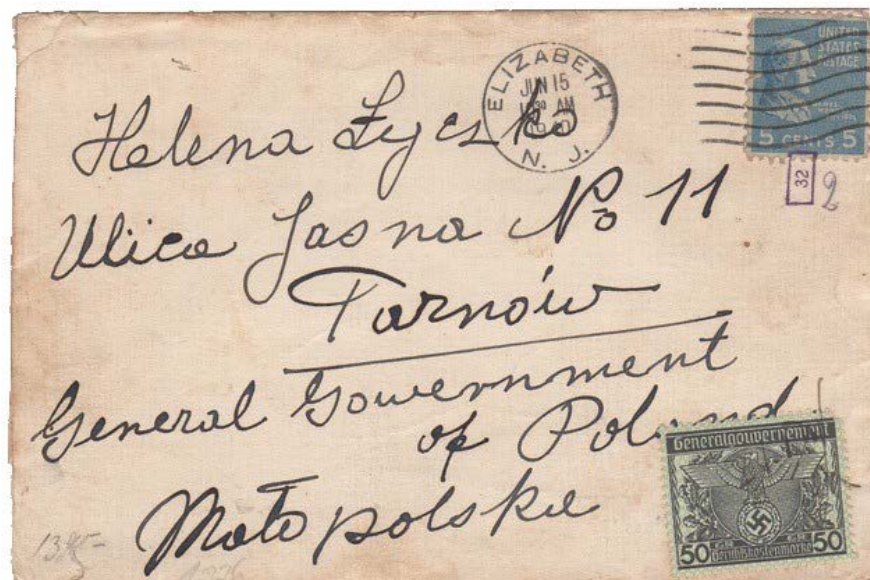 ELIZABETH
N. J.
JUN 15
AM
UNITED
STATES
POSTAGE
5 CENTS 5
32
2
Helena Łyczko
Ulica Jasna No 11
Tarnów
General Gowernment
of Poland
Małopolska
Generalgouvernement
50 Gerichtskostenmarke 50